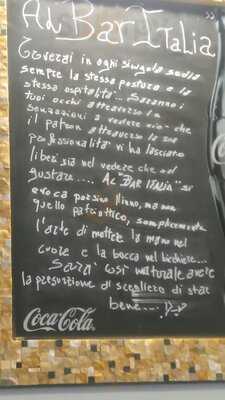 Al Bar Italia
Troverai in ogni singola sedia
sempre la stessa postura e la
stessa ospitalità... Saranno i
tuoi occhi attraverso la
sensazioni a vedere ciò che
il patron attraverso la sua
professionalità vi ha lasciato
liberi sia nel vedere che nel
gustare.... Al "BAR ITALIA" si
evoca persino l'inno, ma non
quello patriottico, semplicemente
l'arte di mettere la mano nel
cuore e la bocca nel bicchiere...
Sarà così naturale avere
la presunzione di scegliere di star
bene...
Coca-Cola